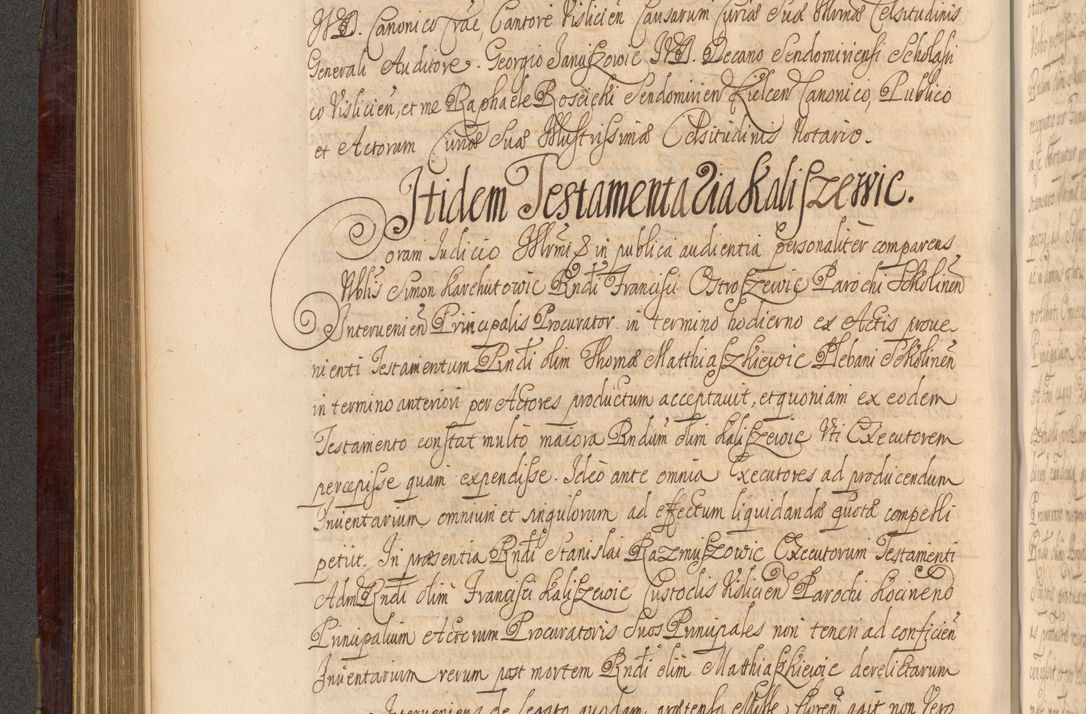 JVD. Canonico Crac. Cantore Vislicień Causarum Curiæ Suæ Illrmæ Celsitudinis
Generali Auditore. Georgio Januszowic JVD. Decano Sendomiriensi Scholasti
co Vislicień, et me Raphaele Roseicki Sendomirień Kielcen Canonico, Publico
et Actorum Curiæ Suæ Illustrissimæ Celsitudinis Notario.
Itidem Testamentaria Kaliszewic.
Coram Judicio Illrmi & in publica audientia personaliter comparens
Nblis Simon Karchutowic Rndi Francisci Ostroszewic Parochi Sokolineń
Intervenień Principalis Procurator in termino hodierno ex Actis prove
nienti Testamentum Rndi olim Thomæ Matthiaszkiewic Plebani Sokolineń
in termino anteriori per Actores productum acceptavit, et quoniam ex eodem
Testamento constat multo maiora Rndum olim Kaliszewic Uti Executorem
percepisse quam expendisse. Ideo ante omnia Executores ad producendum
Inventarium omnium et singulorum ad effectum liquidandæ quotæ compelli
petiit. In præsentia Rndi Stanislai Kazmuszowic Executorum Testamenti
Adm Rndi olim Francisci Kaliszewic Custodis Vislicień Parochi Kocineno
Principalium Actorum Procuratoris Suos Principales non teneri ad conficień
Inventarium rerum post mortem Rndi olim Mathiaszkiewic derelictarum
Interveniens de Legato quodam prætenso Mille floreń ait non Vero